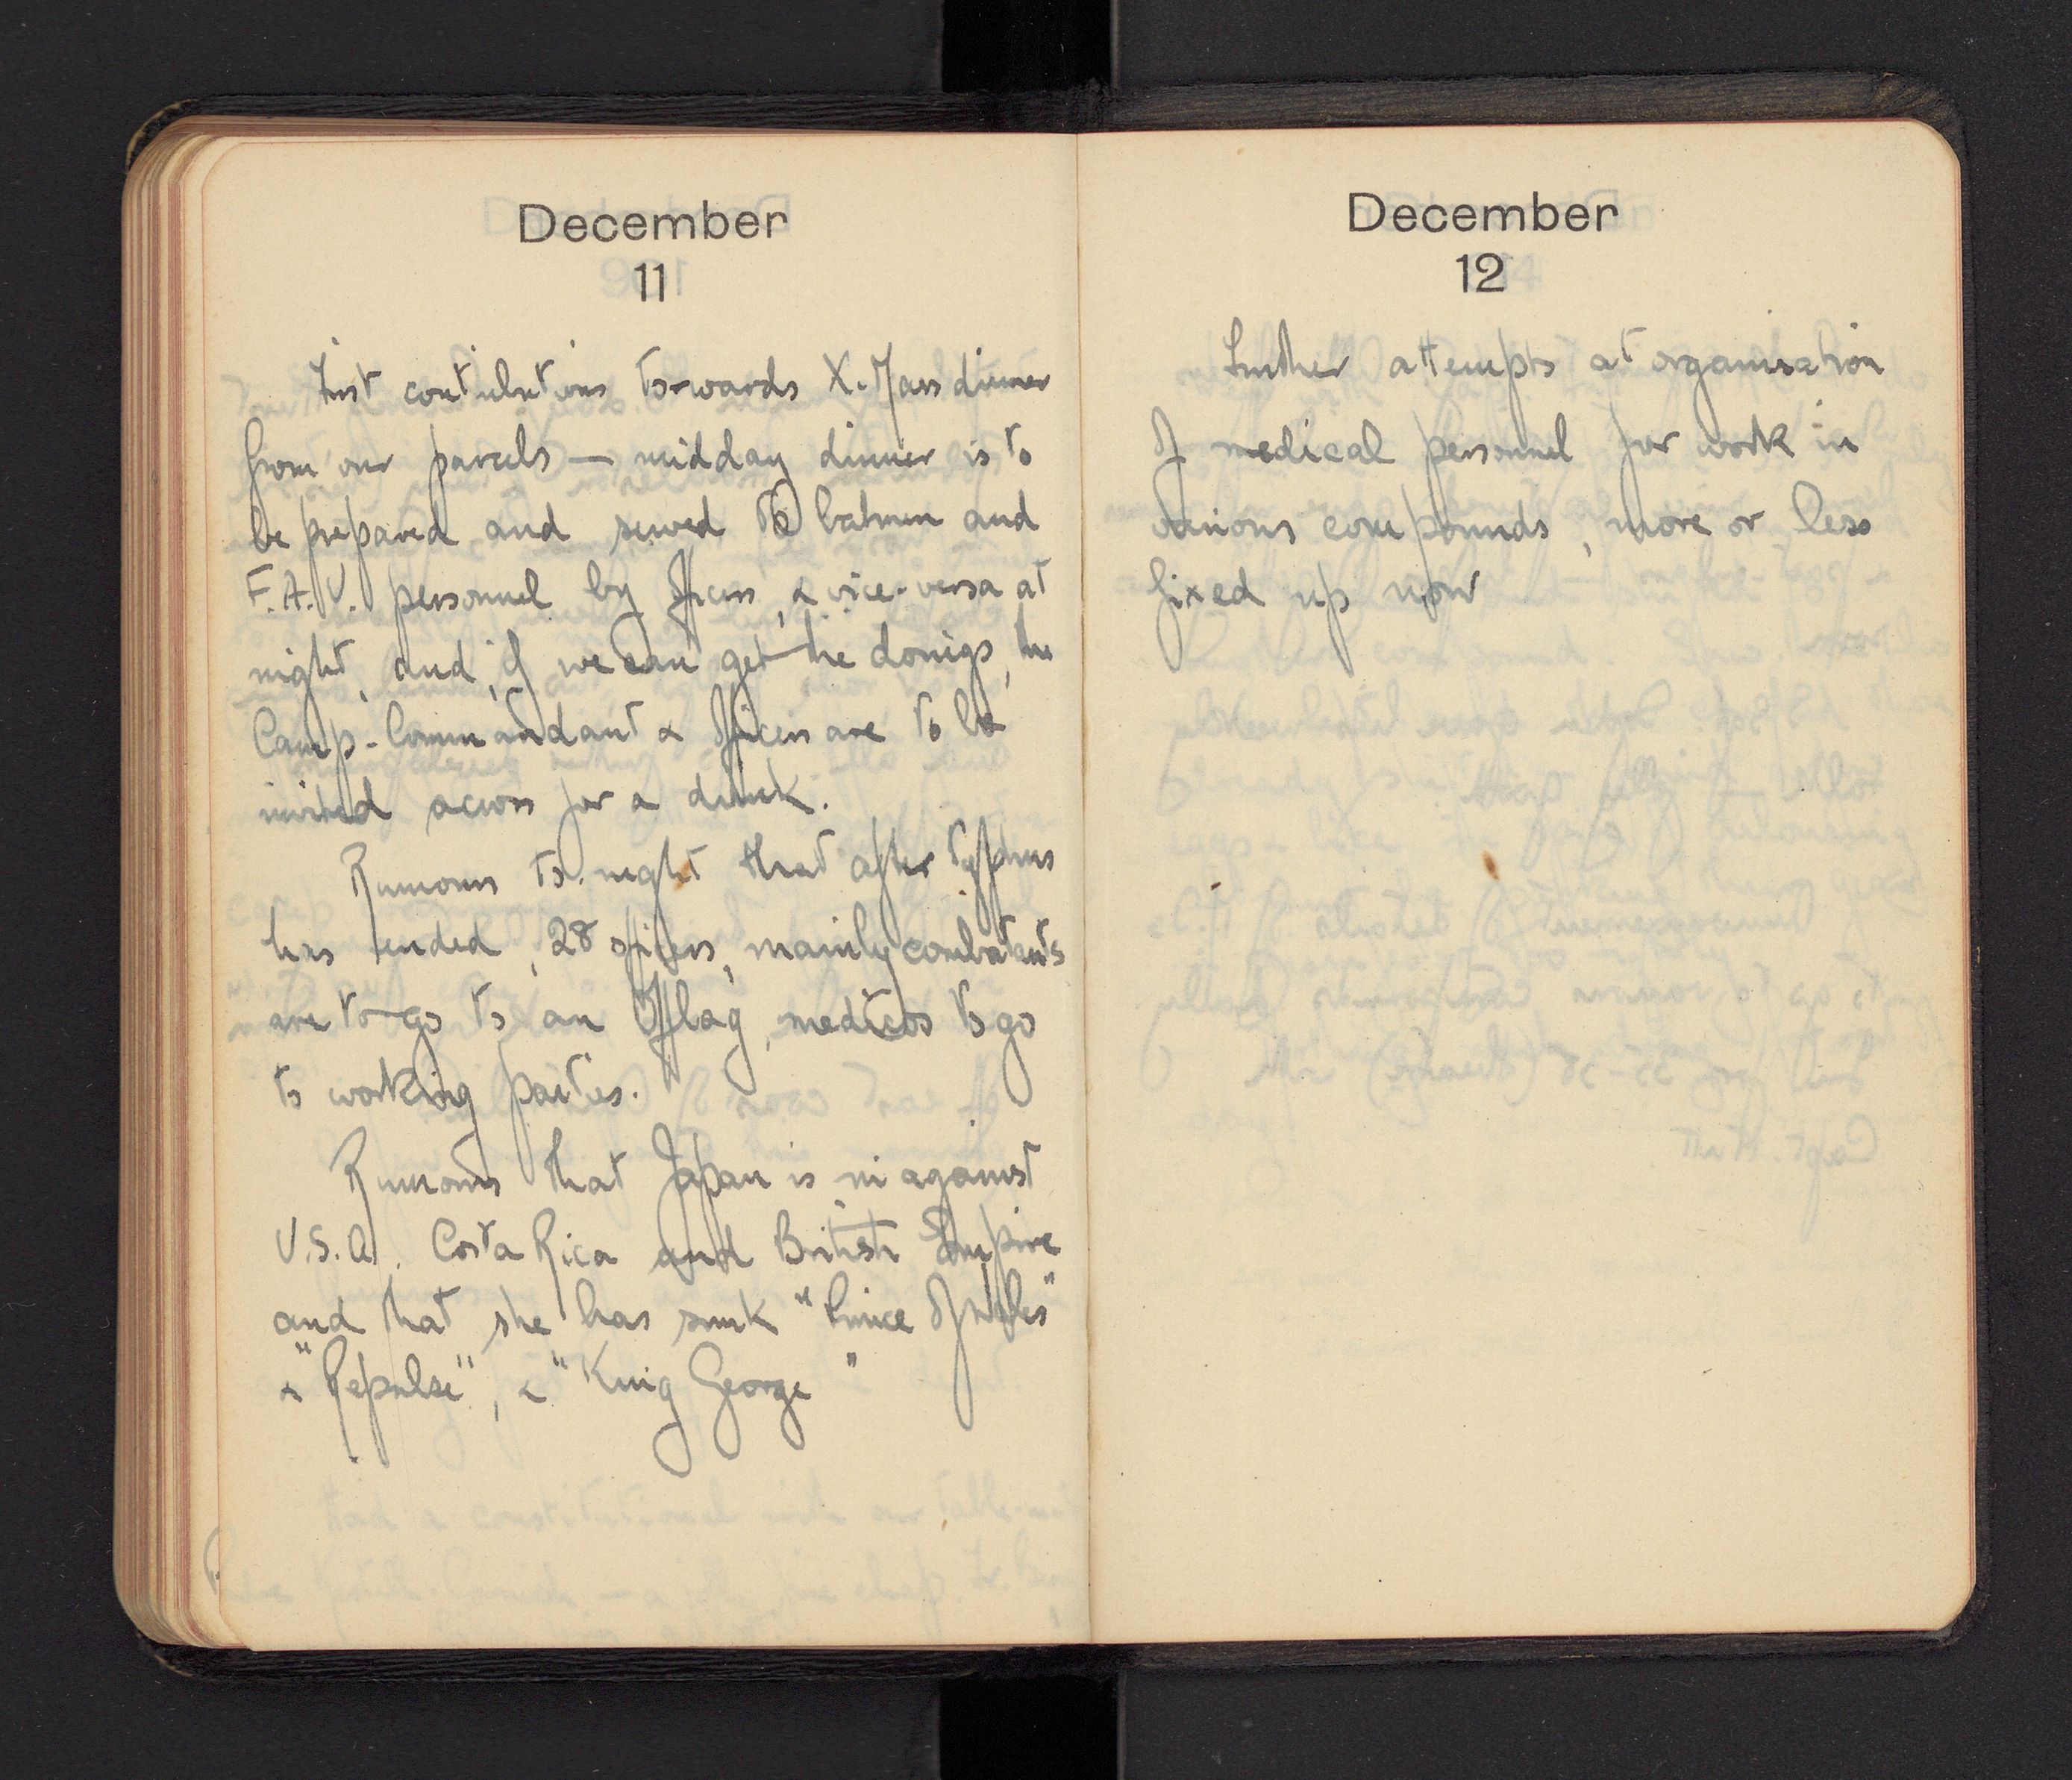 December
11
First contributions to-wards X.Mas dinner
from our parcels — midday dinner is to
be prepared and served to batmen and
F.A.U. personnel by officers, & vice-versa at
night, and, if we can get the doings, the
Camp-Commandant & officers are to be
invited across for a drink.
Rumours to-night that after typhus
has ended, 28 officers, mainly combatants
are to go to an Oflag, medicos to go
to working parties.
Rumours that Japan is in against
U.S.A. Costa Rica and British Empire
and that she has sunk "Prince of Wales"
& "Repulse", & "King George"
December
12
Further attempts at organisation
of medical personnel for work in
various compounds, more or less
fixed up now